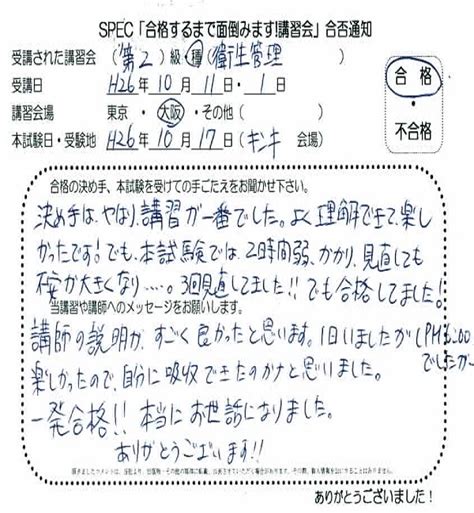 SPEC「合格するまで面倒みます!講習会」合否通知
受講された講習会 (第2)級・種(衛生管理 )
受講日 H26年 10月 11日・ 1日
合格
講習会場 東京・大阪・その他( )
・
本試験日・受験地 H26年 10月 17日(キンキ 会場)
不合格
合格の決め手、本試験を受けての手ごたえをお聞かせ下さい。
決め手は、やはり、講習が一番でした。よく理解できて楽し
かったです!でも、本試験では、2時間弱、かかり、見直しても
不安が大きくなり・・・・。3回見直してました!!でも合格してました!
当講習や講師へのメッセージをお願いします。
講師の説明が、すごく良かったと思います。1日いましたが(PM6:00
でしたか
楽しかったので、自分に吸収できたのかナと思いました。
一発合格!!本当にお世話になりました。
ありがとうございます!!
ありがとうございました!